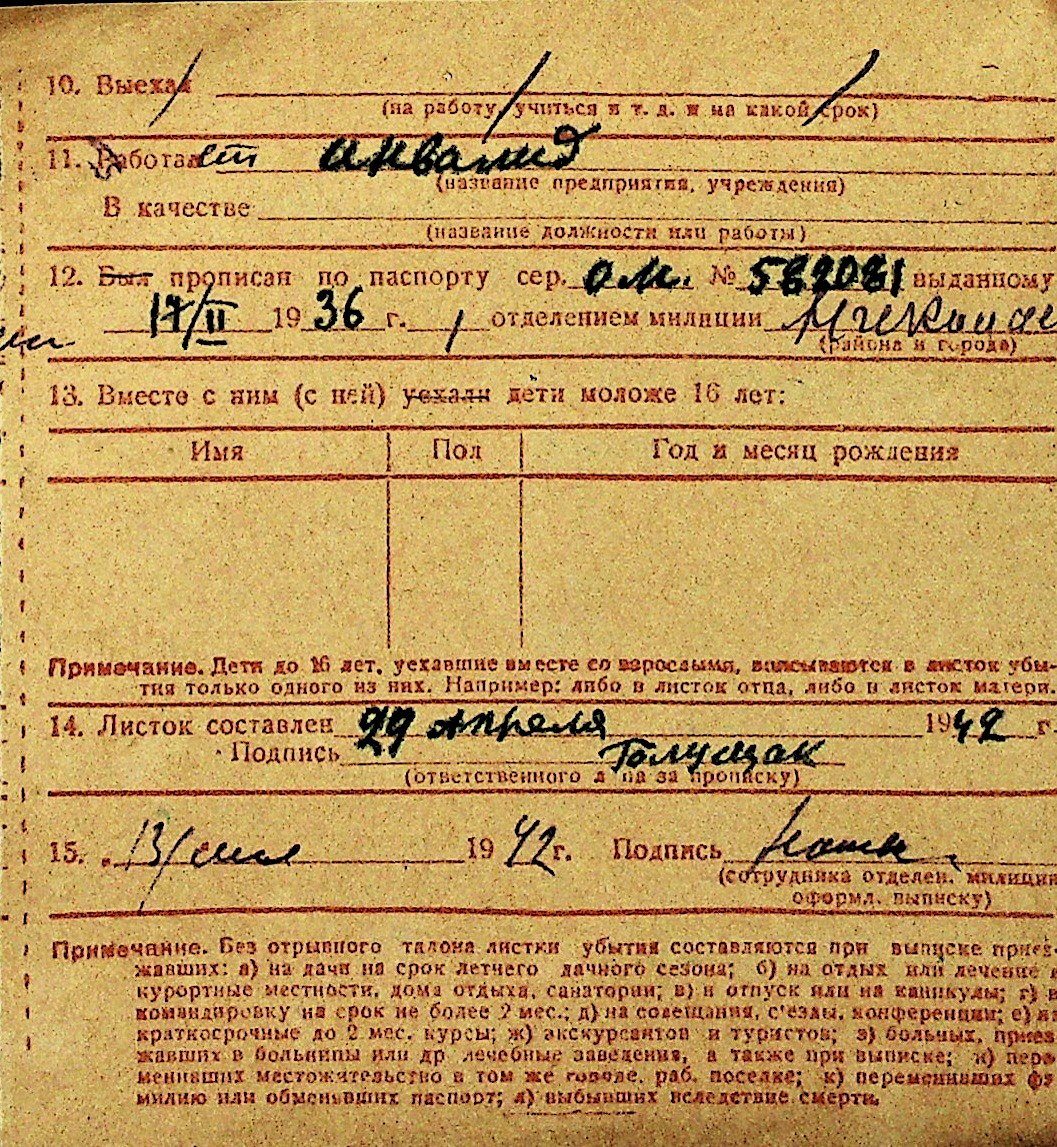 10. Выехал
(на работу, учиться и т. д. и на какой срок)
11. Работает инвалид
(название предприятия, учреждения)
В качестве
(название должности или работы)
12. Был прописан по паспорту сер. ом. № 582081 выданному
17/II 1936 г. 1 отделением милиции
(района и города)
13. Вместе с ним (с ней) уехали дети моложе 16 лет:
Имя Пол Год и месяц рождения
Примечание. Дети до 16 лет, уехавшие вместе со взрослыми, вписываются в листок убы-
тия только одного из них. Например: либо в листок отца, либо в листок матери.
14. Листок составлен 29 апреля 1942 г.
Подпись
(ответственного лица за прописку)
15. 13/ 1942 г. Подпись
(сотрудника отделен. милиции
оформл. выписку)
Примечание. Без отрывного талона листки убытия составляются при выписке приез-
жавших: а) на дачи на срок летнего дачного сезона; б) на отдых или лечение в
курортные местности, дома отдыха, санатории; в) в отпуск или на каникулы; г) в
командировку на срок не более 2 мес.; д) на совещания, с'езды, конференции; е) на
краткосрочные до 2 мес. курсы; ж) экскурсантов и туристов; з) больных, приез-
жавших в больницы или др. лечебные заведения, а также при выписке; и) пере-
менивших местожительство в том же городе, раб. поселке; к) переменивших фа-
милию или обменявших паспорт; л) выбывших вследствие смерти.